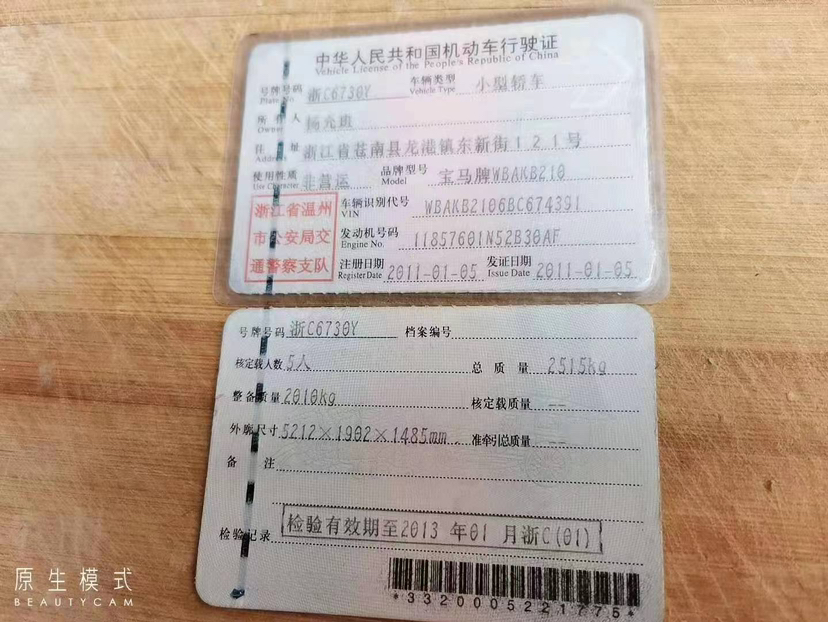 中华人民共和国机动车行驶证
Vehicle License of the People's Republic of China
号牌号码 浙C6730Y 车辆类型 小型轿车
Plate No. Vehicle Type
所有人 杨充琪
Owner
住址 浙江省苍南县龙港镇东新街121号
Address
使用性质 非营运 品牌型号 宝马牌WBAKB210
Use Character Model
浙江省温州
市公安局交
通警察支队
车辆识别代号 WBAKB2106BC674391
VIN
发动机号码 11857601N52B30AF
Engine No.
注册日期 2011-01-05 发证日期 2011-01-05
Register Date Issue Date
号牌号码 浙C6730Y 档案编号
核定载人数 5人 总质量 2515kg
整备质量 2010kg 核定载质量 --
外廓尺寸 5212×1902×1485mm 准牵引总质量 --
备注
检验记录 检验有效期至2013年01月浙C(01)
*3320005221775*
原生模式
BEAUTYCAM